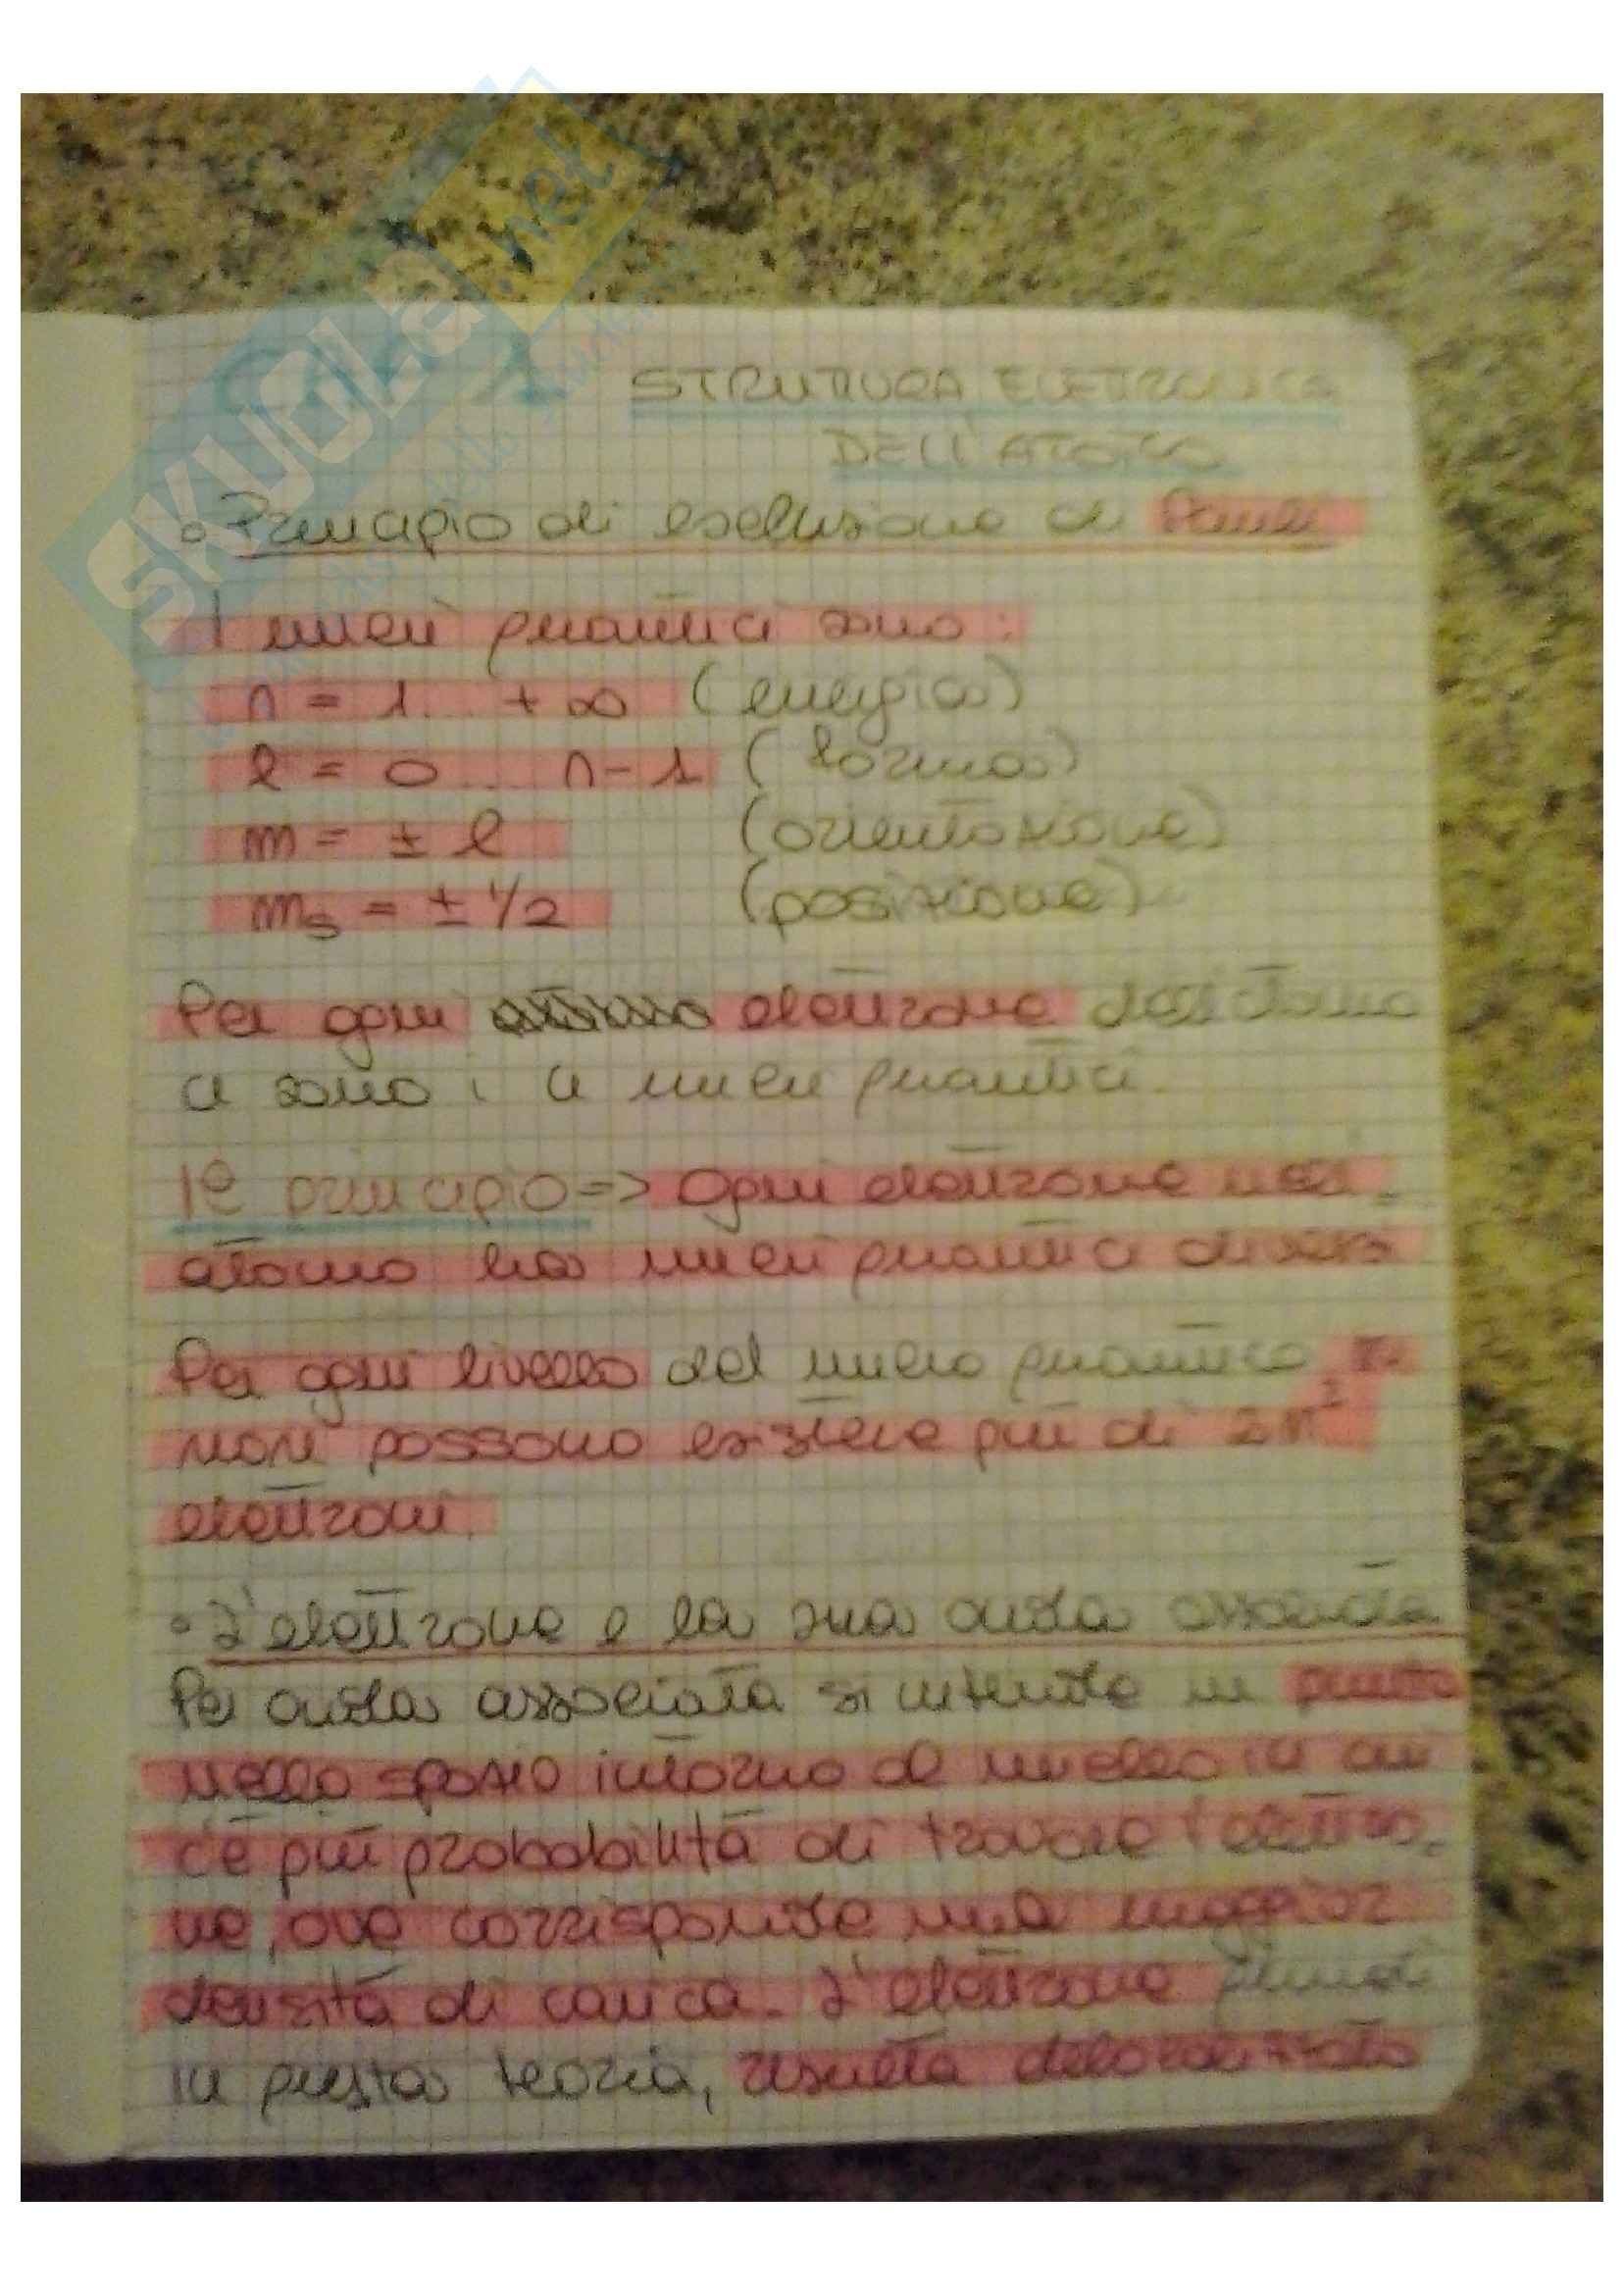 SKUOLA.net
STRUTTURA ELETTRONICA
DELL'ATOMO
° Principio di esclusione di Pauli
I numeri quantici sono:
n = 1... +∞ (energia)
l = 0... n-1 (forma)
m = ± l (orientazione)
ms = ± 1/2 (posizione)
Per ogni elettrone dell'atomo
ci sono i 4 numeri quantici.
1° principio => Ogni elettrone nell'
atomo ha numeri quantici diversi
Per ogni livello del numero quantico n
non possono esistere più di 2n²
elettroni.
° L'elettrone e la sua onda associata
Per onda associata si intende un punto
nello spazio intorno al nucleo in cui
c'è più probabilità di trovare l'elettro-
ne, ove corrisponde una maggior
densità di carica. L'elettrone quindi
in questa teoria, risulta delocalizzato